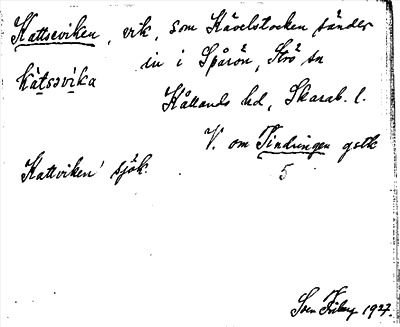 Kattseviken, vik, som Hävelstocken sänder
in i Spårön, Strö sn
kàtssvi̇ka
Kållands hd, Skarab. l.
V. om Tindringen gstk
5
Kattviken' sjök.
Sven 1927.